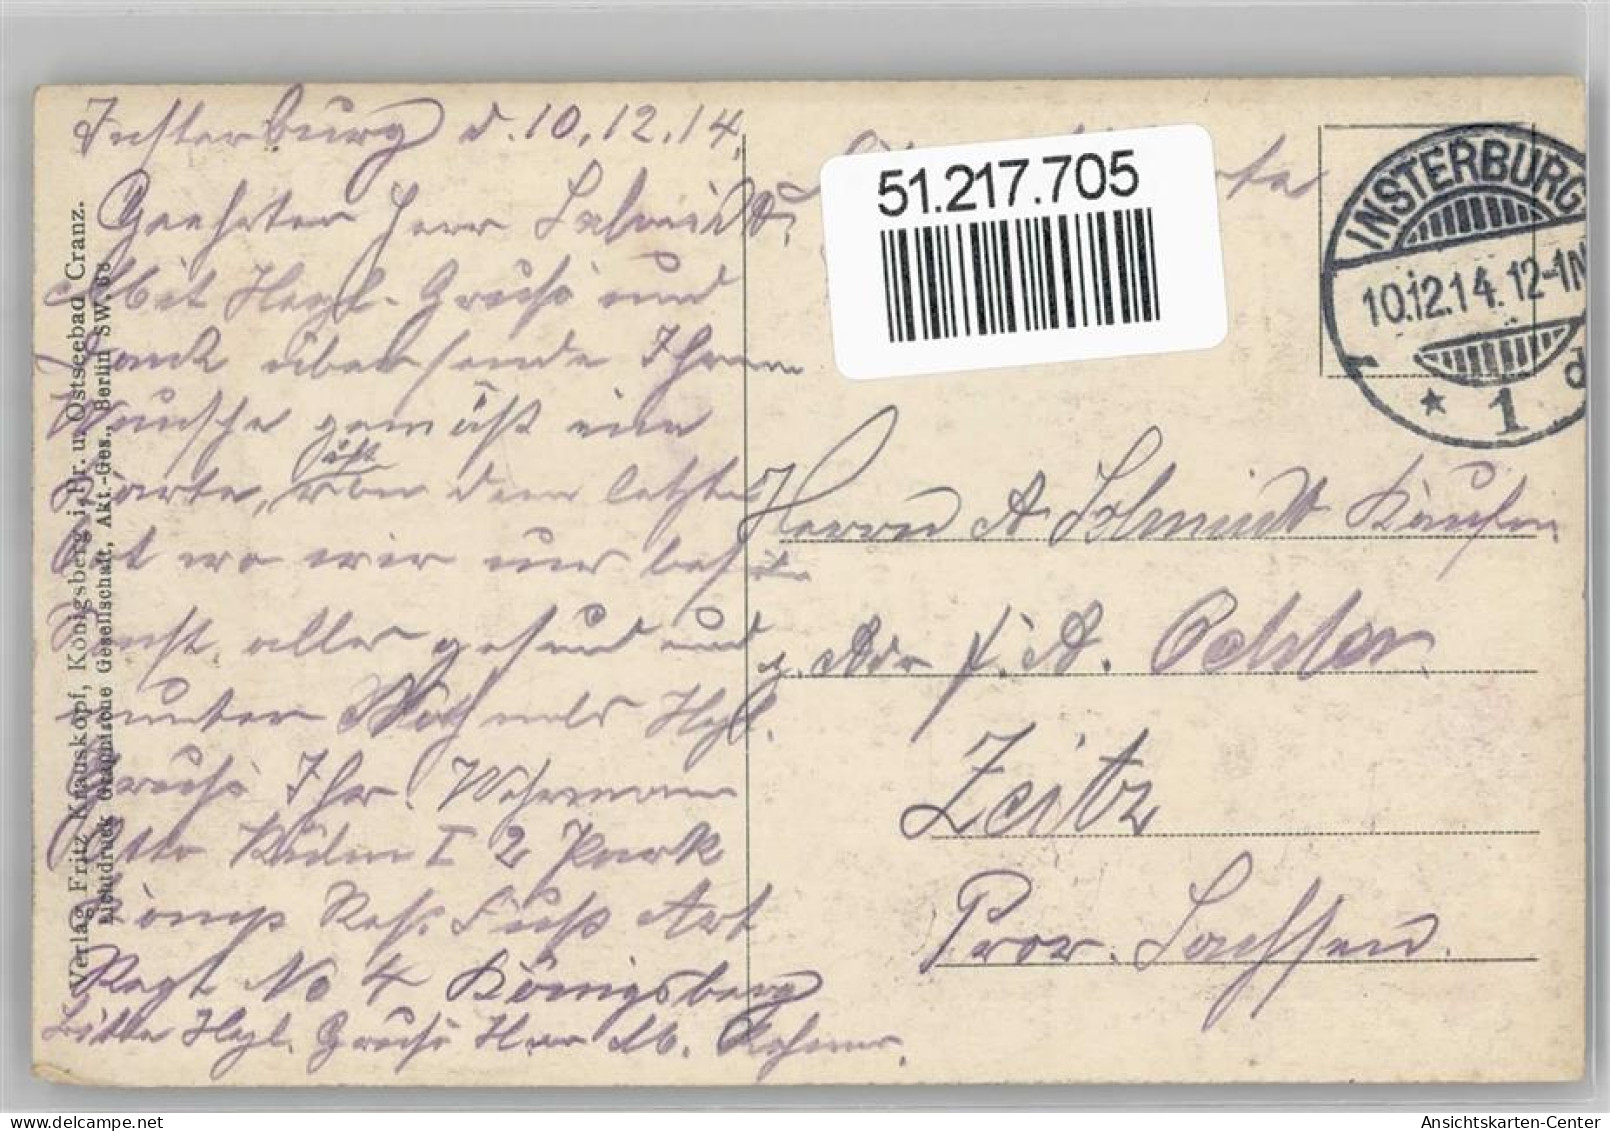 Insterburg d. 10.12.14.
Geehrter Herr Schmidt,
Mit Herzl. Gruß und
Dank übersende Ihrem
Wunsche gemäß eine
Karte, von dem letzten
Ort wo wir uns
Sonst alles gesund und
munter Herzl.
Gruß Ihr. Wehrmann
Otto I 2 Park
Komp Res. Fuß Art
Regt No 4 Königsberg
Bitte Herzl. Gruß Herr
Verlag Fritz Krauskopf, Königsberg i. Pr. u. Ostseebad Cranz.
Lichtdruck Graphische Gesellschaft, Akt.-Ges., Berlin SW. 68
51.217.705
INSTERBURG
10.12.14.12-1N
* 1 d
Herrn A. Schmidt Kaufm
p. Adr
Zeitz
Prov. Sachsen.
Ansichtskarten-Center